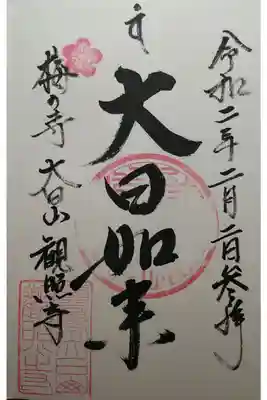 令和二年二月二日参拝
大日如来
梅の寺 大白山 観照寺